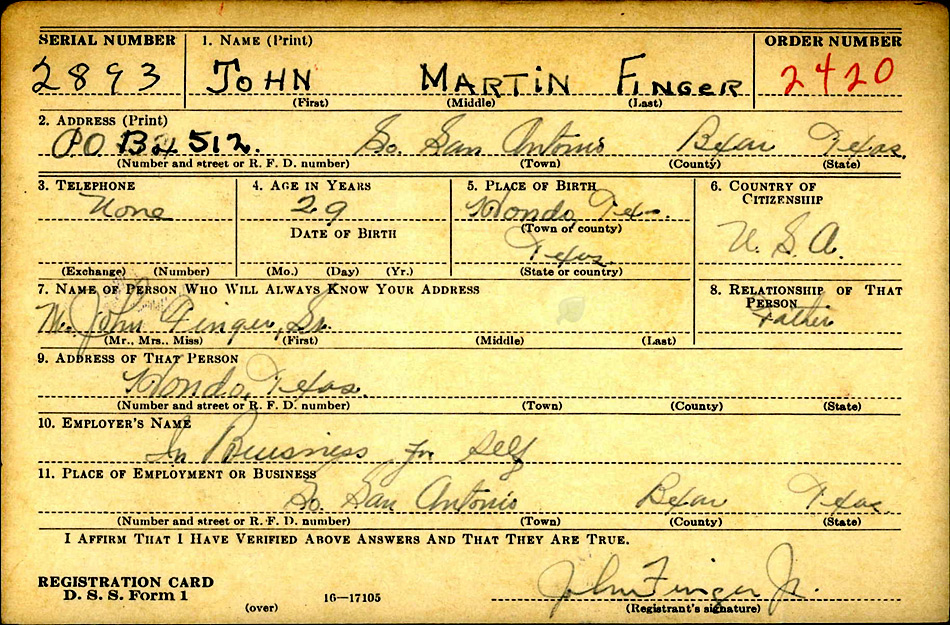 SERIAL NUMBER 1. NAME (Print) ORDER NUMBER
2893 JOHN MARTIN FINGER 2420
(First) (Middle) (Last)
2. ADDRESS (Print)
PO Bx 512. So. San Antonio Bexar Texas.
(Number and street or R. F. D. number) (Town) (County) (State)
3. TELEPHONE 4. AGE IN YEARS 5. PLACE OF BIRTH 6. COUNTRY OF CITIZENSHIP
None 29 Hondo, Tex.
DATE OF BIRTH (Town or county) U. S. A.
Texas
(Exchange) (Number) (Mo.) (Day) (Yr.) (State or country)
7. NAME OF PERSON WHO WILL ALWAYS KNOW YOUR ADDRESS 8. RELATIONSHIP OF THAT PERSON
M. John Finger, Sr. Father
(Mr., Mrs., Miss) (First) (Middle) (Last)
9. ADDRESS OF THAT PERSON
Hondo, Texas.
(Number and street or R. F. D. number) (Town) (County) (State)
10. EMPLOYER'S NAME
In Buisness for Self
11. PLACE OF EMPLOYMENT OR BUSINESS
So. San Antonio Bexar Texas.
(Number and street or R. F. D. number) (Town) (County) (State)
I AFFIRM THAT I HAVE VERIFIED ABOVE ANSWERS AND THAT THEY ARE TRUE.
REGISTRATION CARD
D. S. S. Form 1
(over) 16—17105 John Finger Jr.
(Registrant's signature)